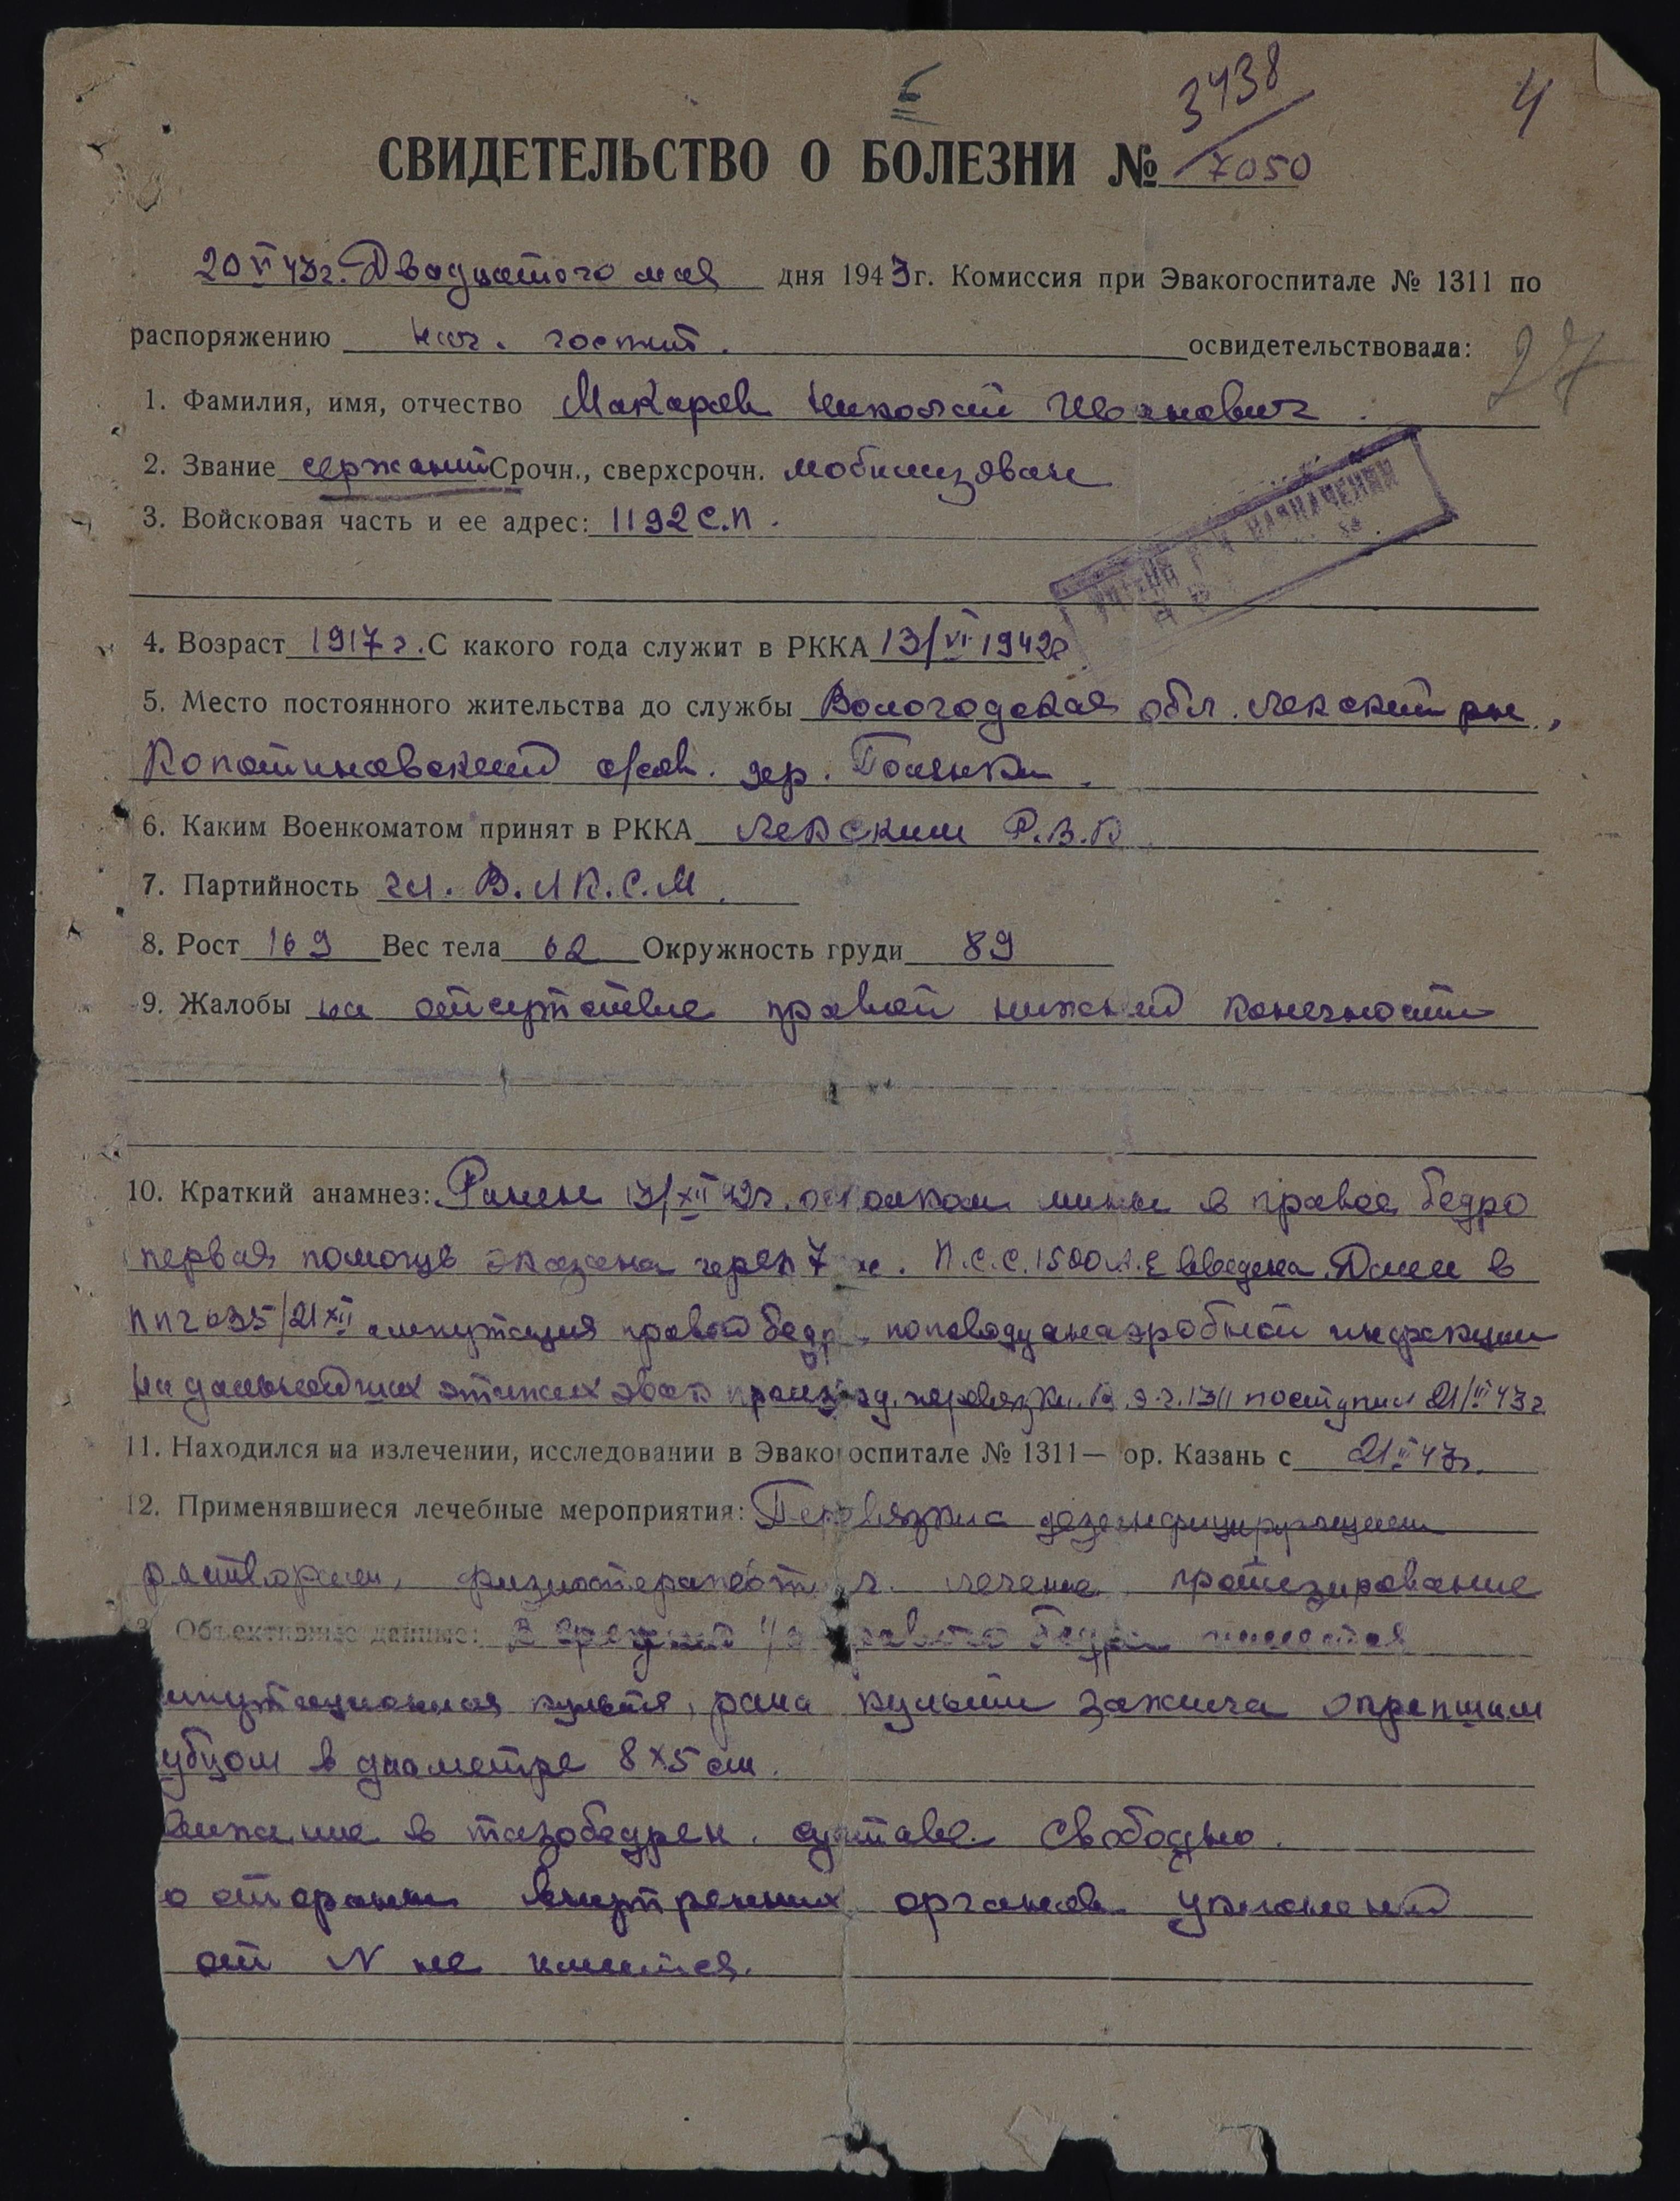 6
3438
4
СВИДЕТЕЛЬСТВО О БОЛЕЗНИ № 7050
20 VI 43г. Двадцатого мая дня 1943г. Комиссия при Эвакогоспитале № 1311 по
распоряжению нач. госпит. освидетельствовала:
27
1. Фамилия, имя, отчество Макаров Николай Иванович.
2. Звание сержант Срочн., сверхсрочн. мобилизован
НАЗНАЧЕНИИ
3. Войсковая часть и ее адрес: 1192 С.П.
4. Возраст 1917 г. С какого года служит в РККА 13/VI 1942г
5. Место постоянного жительства до службы Вологодская обл. Лекский рн.,
сов. дер. Полянки.
6. Каким Военкоматом принят в РККА Лекским Р.В.К
7. Партийность чл. В.Л.К.С.М.
8. Рост 169 Вес тела 62 Окружность груди 89
9. Жалобы на отсутствие правой нижней конечности
10. Краткий анамнез: Ранен 13/XII 42г. осколком мины в правое бедро
первая помощь оказана через 7 ч. П.С.С. 1500 А.Е введена. Далее в
ППГ 635/21 XII ампутация правой бедр. по поводу анаэробной инфекции
На дальнейших этапах эвак производ. перевязки. В э.г. 1311 поступил 21/III 43г
11. Находился на излечении, исследовании в Эвакогоспитале № 1311— гор. Казань с 21 III 43г.
12. Применявшиеся лечебные мероприятия: Перевязки с дезенфицирующим
раствором, физиотерапевт. лечение, протезирование
13. Объективные данные: В средней 1/3 правого бедра имеется
ампутационная культя, рана культи зажила окрепшим
убцом в диаметре 8х5 см.
вижение в тазобедрен. суставе свободно.
о стороны внутренних органов уклонений
от N не имеется.